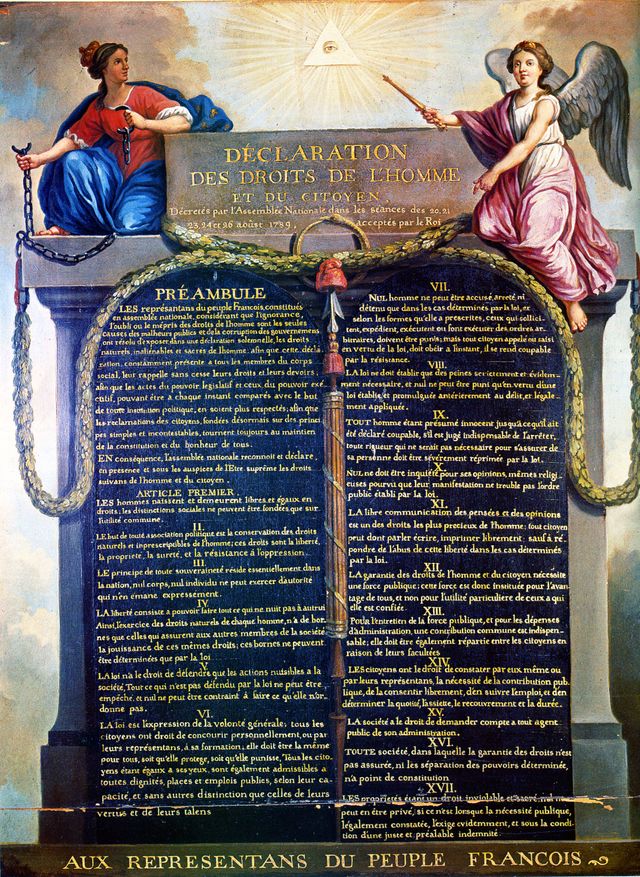 DÉCLARATION
DES DROITS DE L'HOMME
ET DU CITOYEN
Décretés par l'Assemblée Nationale dans les séances des 20, 21
23, 24 et 26 aoust 1789, acceptés par le Roi
PRÉAMBULE
LES représantans du peuple Francois, constitués
en assemblée nationale, considérant que l'ignorance,
l'oubli ou le mépris des droits de l'homme sont les seules
causes des malheurs publics et de la corruption des gouvernemens
ont résolu d'exposer dans une déclaration solemnelle, les droits
naturels, inaliénables et sacrés de l'homme; afin que cette décla-
ration, constamment présente a tous les membres du corps
social, leur rappelle sans cesse leurs droits et leurs devoirs;
afin que les actes du pouvoir legislatif et ceux du pouvoir exé-
cutif, pouvant être a chaque instant comparés avec le but
de toute institution politique, en soient plus respectés; afin que
les reclamations des citoyens, fondées désormais sur des princi-
pes simples et incontestables, tournent toujours au maintien
de la constitution et du bonheur de tous.
EN conséquence, l'assemblée nationale reconnoit et déclare,
en presence et sous les auspices de l'Etre suprême les droits
suivans de l'homme et du citoyen.
ARTICLE PREMIER.
LES hommes naissent et demeurent libres et égaux en
droits; les distinctions sociales ne peuvent être fondées que sur
l'utilité commune.
II.
LE but de toute association politique est la conservation des droits
naturels et inprescriptibles de l'homme; ces droits sont la liberté,
la proprieté, la sureté, et la résistance à l'oppression.
III.
LE principe de toute souveraineté réside essentiellement dans
la nation, nul corps, nul individu ne peut exercer d'autorité
qui n'en émane expressement.
IV.
LA liberté consiste a pouvoir faire tout ce qui ne nuit pas à autrui
Ainsi, l'exercice des droits naturels de chaque homme, n'a de bor-
nes que celles qui assurent aux autres membres de la société
la jouissance de ces mêmes droits; ces bornes ne peuvent
être déterminées que par la loi
V.
LA loi n'a le droit de défendre que les actions nuisibles a la
société. Tout ce qui n'est pas défendu par la loi ne peut être
empêché, et nul ne peut être contraint à faire ce qu'elle n'or-
donne pas.
VI.
LA loi est l'expression de la volonté générale; tous les
citoyens ont droit de concourir personnellement, ou par
leurs représentans, à sa formation; elle doit être la même
pour tous, soit qu'elle protege, soit qu'elle punisse. Tous les cito-
yens étant égaux à ses yeux, sont également admissibles a
toutes dignités, places et emplois publics, selon leur ca-
pacité, et sans autres distinction que celles de leurs
vertus et de leurs talens
VII.
NUL homme ne peut être accusé, arreté, ni
détenu que dans les cas déterminés par la loi, et
selon les formes qu'elle a prescrites, ceux qui sollici-
tent, expédient, exécutent ou font exécuter des ordres ar-
bitraires, doivent être punis; mais tout citoyen appelé ou saisi
en vertu de la loi, doit obéir a l'instant, il se rend coupable
par la résistance.
VIII.
LA loi ne doit établir que des peines strictement et évidem-
ment nécessaire, et nul ne peut être puni qu'en vertu d'une
loi établie et promulguée antérierement au délit, et légale-
ment appliquée.
IX.
TOUT homme étant présumé innocent jusqu'a ce qu'il ait
été déclaré coupable, s'il est jugé indispensable de l'arrêter,
toute rigueur qui ne serait pas nécessaire pour s'assurer de
sa personne doit être sévèrement réprimée par la loi.
X.
NUL ne doit être inquiété pour ses opinions, mêmes religi-
euses pourvu que leur manifestation ne trouble pas l'ordre
public établi par la loi.
XI.
LA libre communication des pensées et des opinions
est un des droits les plus precieux de l'homme; tout citoyen
peut dont parler écrire, imprimer librement: sauf à ré-
pondre de l'abus de cette liberté dans les cas déterminés
par la loi.
XII.
LA garantie des droits de l'homme et du citoyen nécessite
une force publique; cette force est donc instituée pour l'avan-
tage de tous, et non pour l'utilité particuliere de ceux a qui
elle est confiée.
XIII.
Pour l'entretien de la force publique, et pour les dépenses
d'administration, une contribution commune est indispen-
sable; elle doit être également répartie entre les citoyens en
raison de leurs facultées
XIV.
LES citoyens ont le droit de constater par eux même ou
par leurs représentans, la nécessité de la contribution pub-
lique, de la consentir librement, d'en suivre l'emploi, et d'en
déterminer la quotité, l'assiette, le recouvrement et la durée.
XV.
LA société a le droit de demander compte a tout agent
public de son administration.
XVI.
TOUTE société, dans laquelle la garantie des droits n'est
pas assurée, ni les séparation des pouvoirs déterminée,
n'a point de constitution
XVII.
LES proprietés étant un droit inviolable et sacré, nul ne
peut en être privé, si ce n'est lorsque la nécessité publique,
légalement constatée, l'exige evidemment, et sous la condi-
tion d'une juste et préalable indemnité.
AUX REPRESENTANS DU PEUPLE FRANCOIS